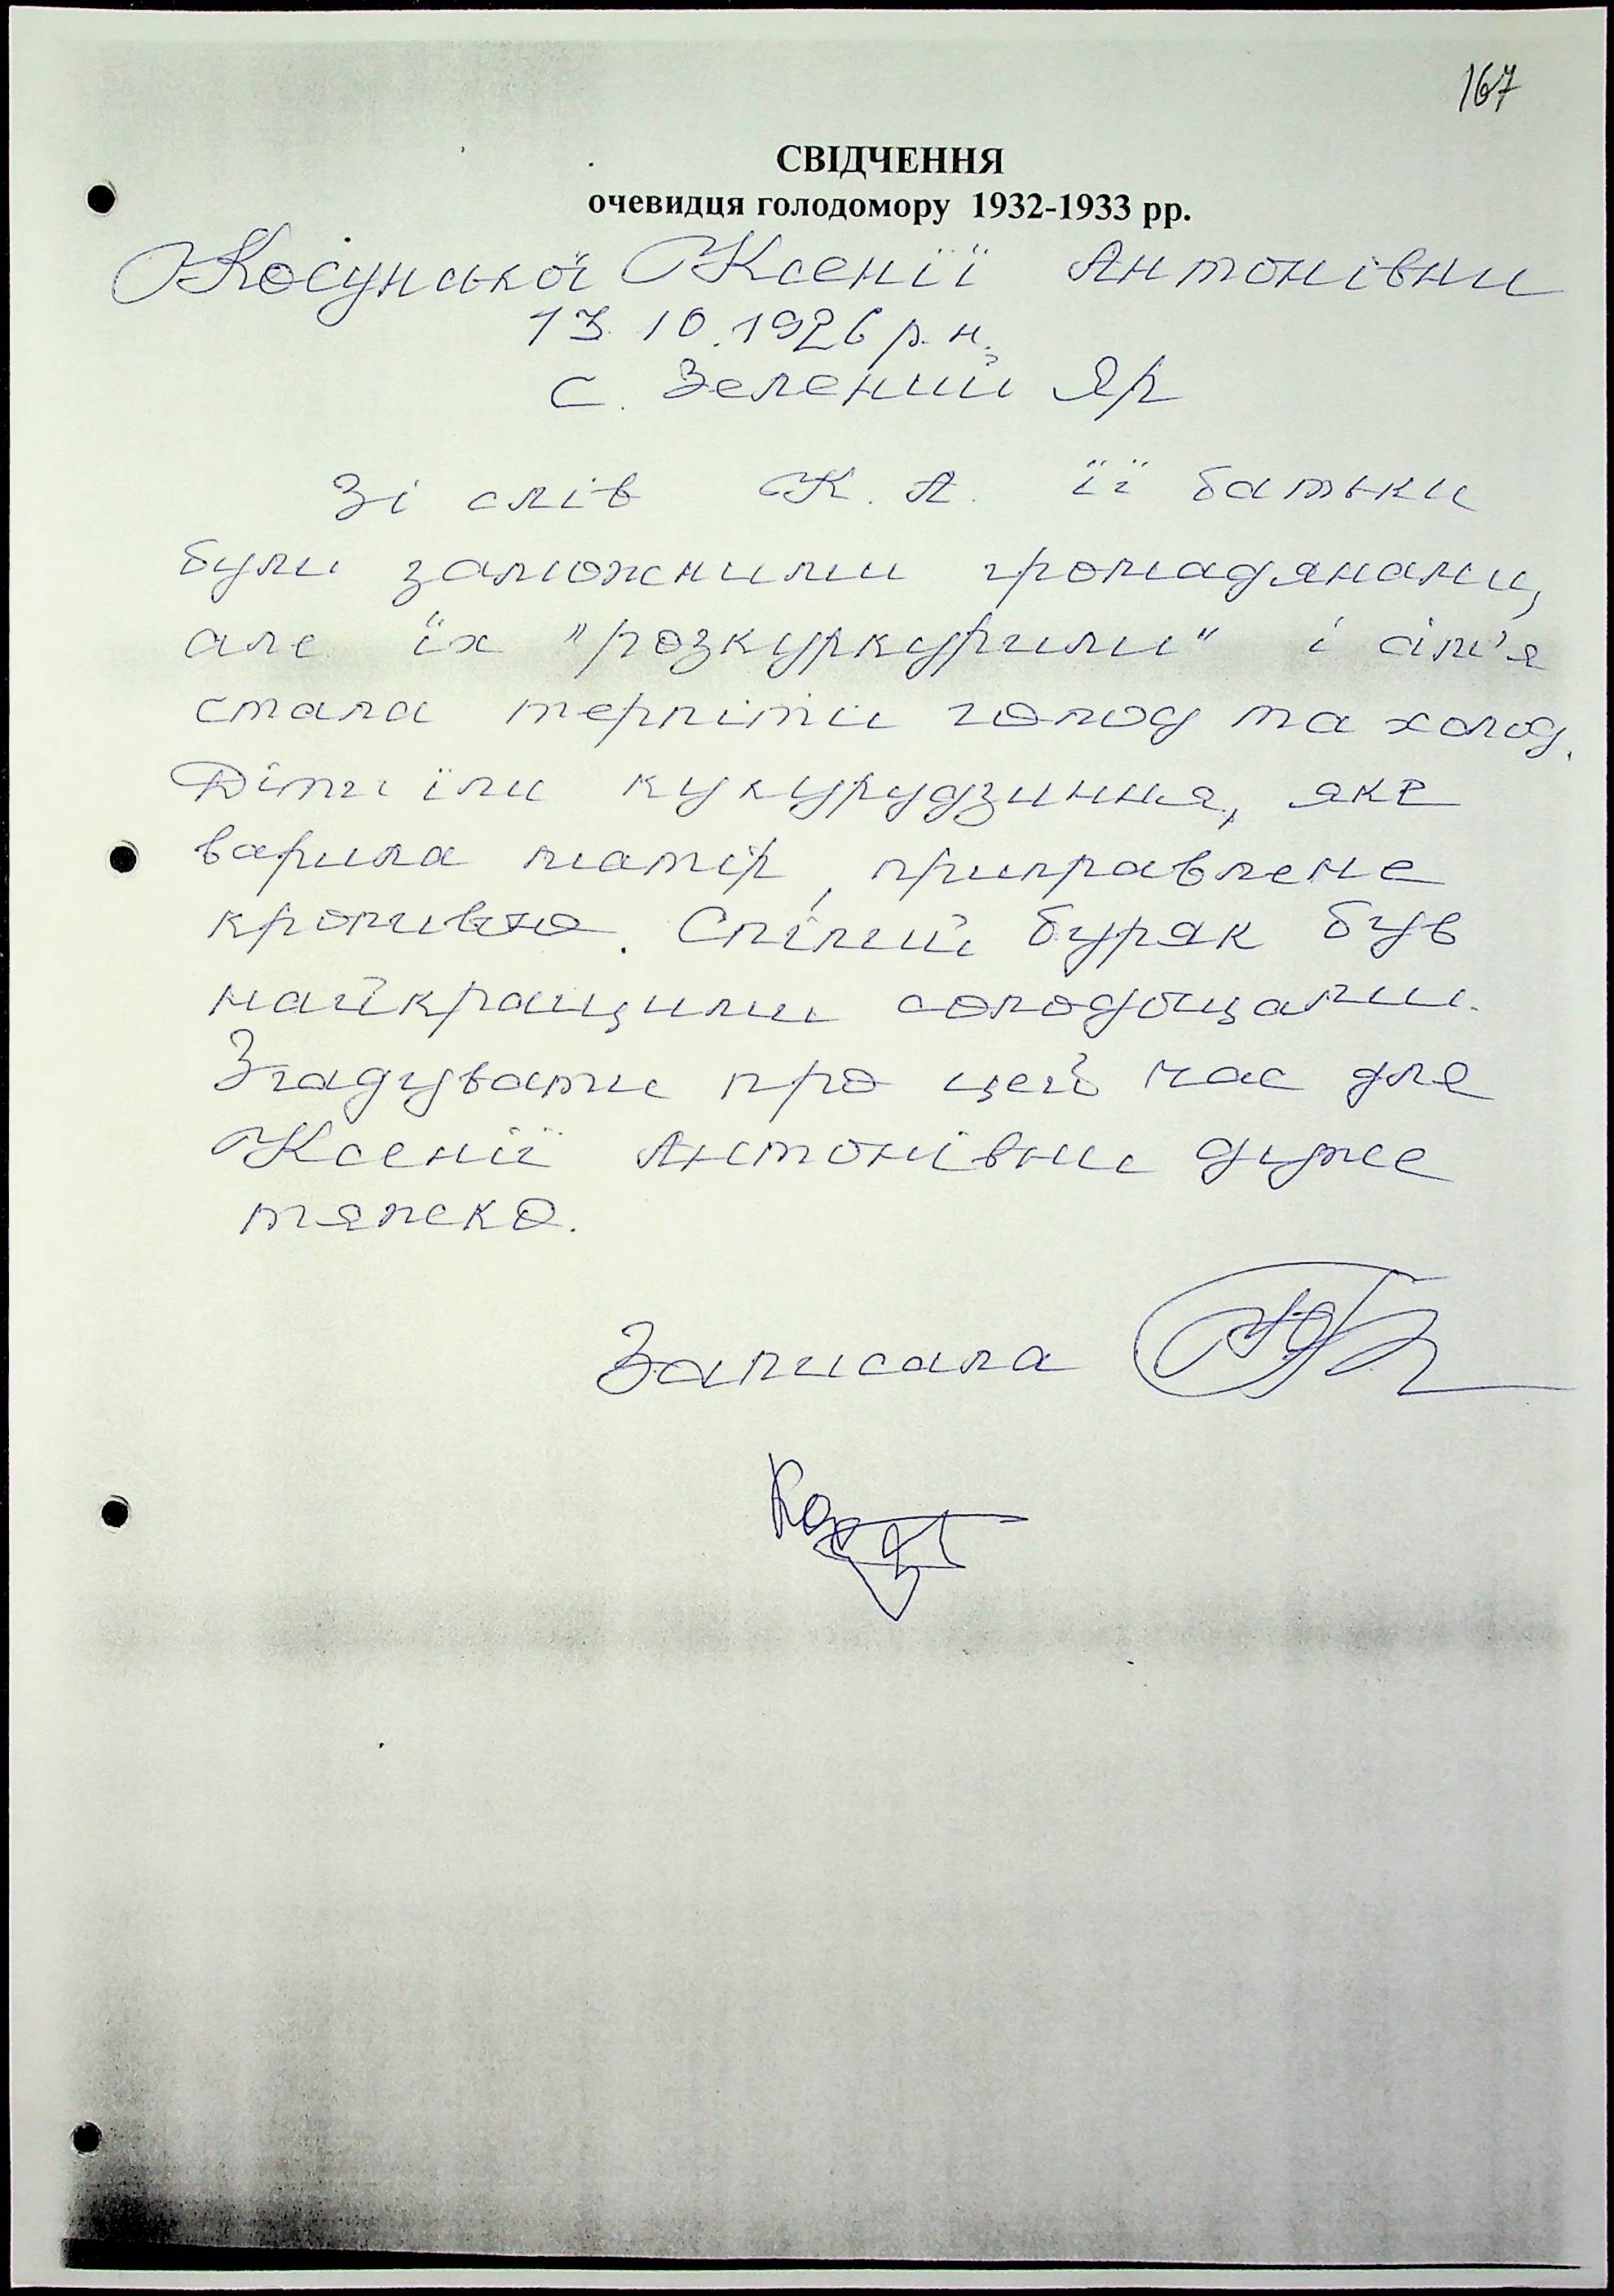 167
СВІДЧЕННЯ
очевидця голодомору 1932-1933 рр.
Косунської Ксенії Антонівни
13.10.1926 р. н.
с. Зелений Яр
Зі слів К. А. її батьки
були заможними громадянами,
але їх "розкуркурили" і сім'я
стала терпіти голод та холод.
Діти їли кукурудзиння, яке
варила матір, приправлене
кропивою. Спілий буряк був
найкращими солодощами.
Згадувати про цей час для
Ксенії Антонівни дуже
тяжко.
Записала